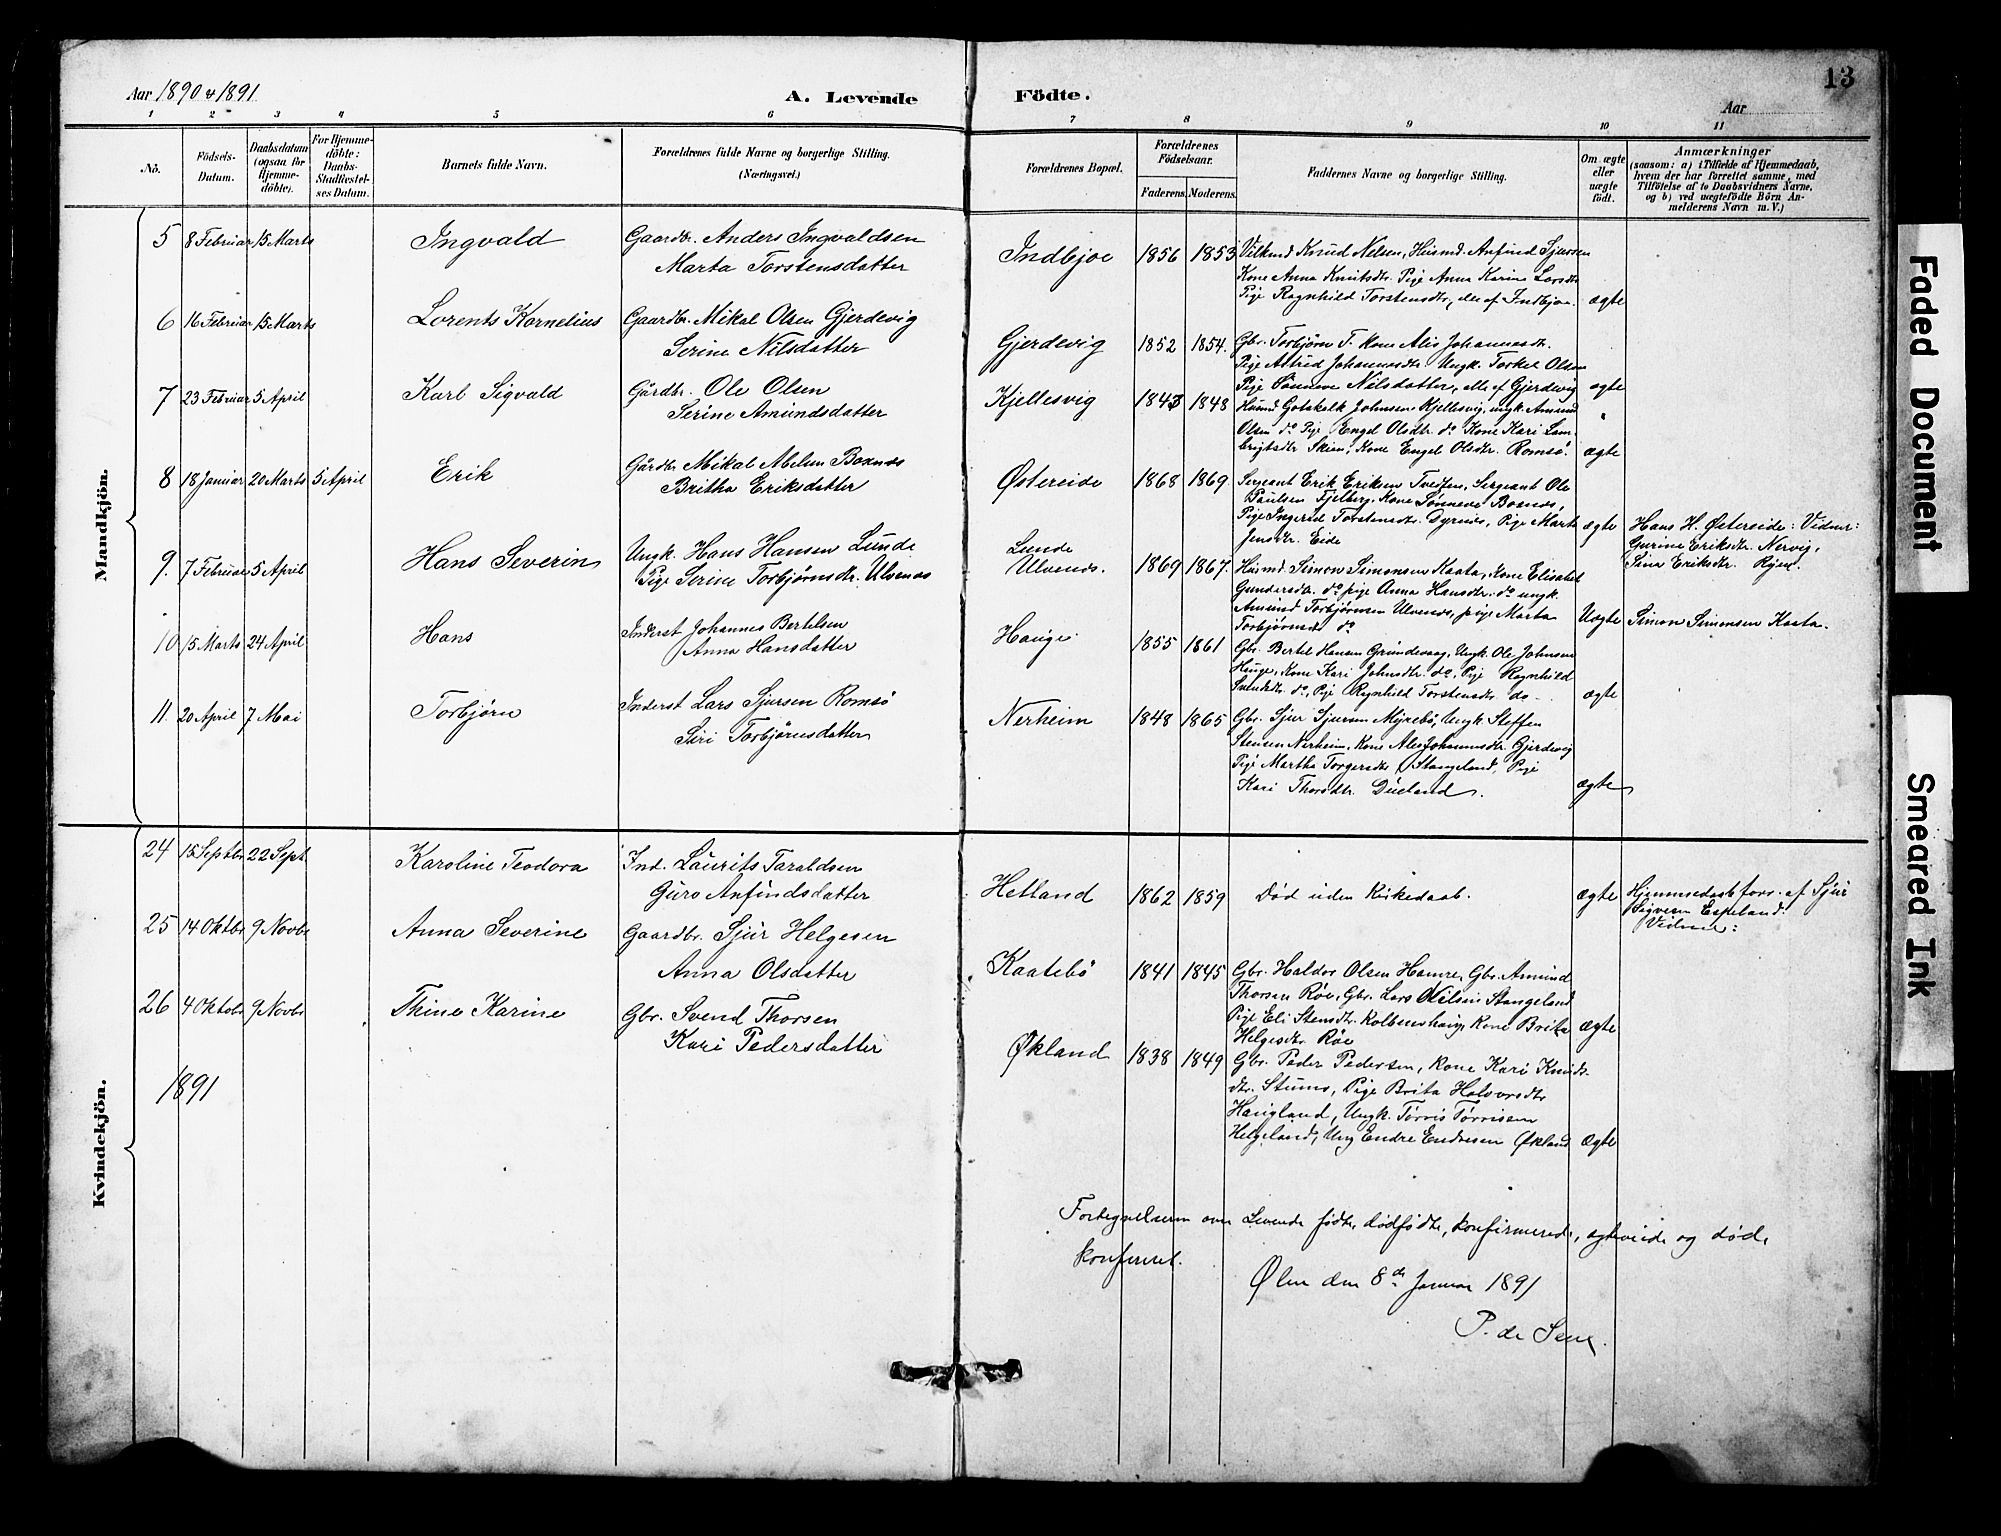 Aar 1890 & 1891
A. Levende Födte.
Aar
13
1 2 3 4 5 6 7 8 9 10 11
No.
Födsels-Datum.
Daabsdatum (ogsaa for Hjemme-döbte).
For Hjemme-döbte: Daabs-Stadfæstel-ses Datum.
Barnets fulde Navn.
Forældrenes fulde Navne og borgerlige Stilling. (Næringsvei.)
Forældrenes Bopæl.
Forældrenes Födselsaar.
Faderens. Moderens.
Faddernes Navne og borgerlige Stilling.
Om ægte eller uægte födt.
Anmærkninger (saasom: a) i Tilfælde af Hjemmedaab, hvem der har forrettet samme, med Tilföielse af to Daabsvidners Navne, og b) ved uægtefödte Börn An-melderens Navn m. V.)
Mandkjön.
5 8 Februar 15 Marts Ingvald Gaardbr. Anders Ingvaldsen
Marta Torstensdatter
Indbjoe 1856 1853 Knud Nelsen, Husmd. Anfind Sjursen
Kone Anna Knutsdr. Pige Anna Karine Larsdtr
Pige Ragnhild Torstensdtr, alle af Indbjoe. ægte
6 16 Februar 15 Marts Lorents Kornelius Gaardbr. Mikal Olsen Gjerdevig
Serine Nilsdatter
Gjerdevig 1852 1854. Gbr. Torbjørn T. Kone Alis Johannesdt.
Pige Astrid Johannesdtr. Ungk. Torkel Olsen
Pige Sønneve Nilsdatter, alle af Gjerdevig ægte
7 23 Februar 5 April Karl Sigvald Gårdbr. Ole Olsen
Serine Amundsdatter
Kjellesvig 1843 1848 Husmd Gotskalk Johnsen Kjellesvig, ungk. Amund
Olsen do Pige Engel Olsdtr. do Kone Kari Lam-
brigtsdtr Skeim, Kone Engel Olsdtr. Romsø. ægte
8 18 Januar 20 Marts 5 April Erik Gårdbr Mikal Boxnæs
Britha Eriksdatter
Østereide 1868 1869 Sergeant Erik Eriksen, Sergeant Ole
Paulsen Fjelberg, Kone Sønneve Boxnæs,
Pige Ingerid Torstensdtr. Dyrnæs, Pige Marta
Jensdtr. Eide ægte
Hans H. Østereide: Vidner:
Gurine Eriksdtr. Nervig,
Sina Eriksdtr.
9. 7 Februar 5 April Hans Severin Ungk. Hans Hansen Lunde
Pige Serine Torbjørnsdtr. Ulvenæs
Lunde
Ulvenæs. 1869 1867. Husmd. Simon Simonsen Kaata, Kone Elisabet
Gundersdtr. do pige Anna Hansdtr. do ungk.
Amund Torbjørnsen Ulvenæs, pige Marta
Torbjørnsdt do Uægte Simon Simonsen Kaata.
10 15 Marts 24 April Hans Inderst Johannes Bertelsen
Anna Hansdatter
Hauge 1855 1861 Gbr. Bertel Hansen Grindevaag, Ungk. Ole Johnsen
Hauge, Kone Kari Johnsdtr. do, Pige Ragnhild
Svendsdtr. do, Pige Ragnhild Torstensdtr do ægte
11. 20 April 7 Mai Torbjørn Inderst Lars Sjursen Romsø
Siri Torbjørnsdatter
Nerheim 1848 1865 Gbr. Sjur Sjursen Myrebø, Ungk. Steffen
Stensen Nerheim, Kone Alis Johannesdtr. Gjerdevig
Pige Martha Torgersdtr Stangeland, Pige
Kari Thorsdtr. Dueland. ægte
Kvindekjön.
24 15 Septbr 22 Sept Karoline Teodora Ind. Laurits Taraldsen
Guro Anfindsdatter
Hetland 1862 1859 Død uden Kirkedaab. ægte Hjemmedaab forr. af Sjur
Espeland.
Vidner:
25 14 Oktbr 9 Novbr Anna Severine Gaardbr. Sjur Helgesen
Anna Olsdatter
Kaatebø 1841 1845 Gbr. Haldor Olsen Hamre, Gbr. Amund
Thorsen Røe, Gbr. Lars Nilsen Stangeland
Pige Eli Stensdtr. Kolbenshaug, Kone Brita
Helgesdtr Røe ægte
26 4 Oktobr 9 Novbr Thine Karine Gbr. Svend Thorsen
Kari Pedersdatter
Økland 1838 1849 Gbr. Peder Pedersen, Kone Kari Knuds-
dtr. Stumo, Pige Brita Halvorsdtr
Haugland, Ungk. Tørris Tørrisen
Helgeland, Ung Endre Endresen Økland ægte
1891
Fortegnelserne over Levende fødte, dødfødte, konfirmerede, ægteviede og døde
konfereret.
Ølen den 8de Januar 1891
P. de Seve.
Faded Document
Smeared Ink